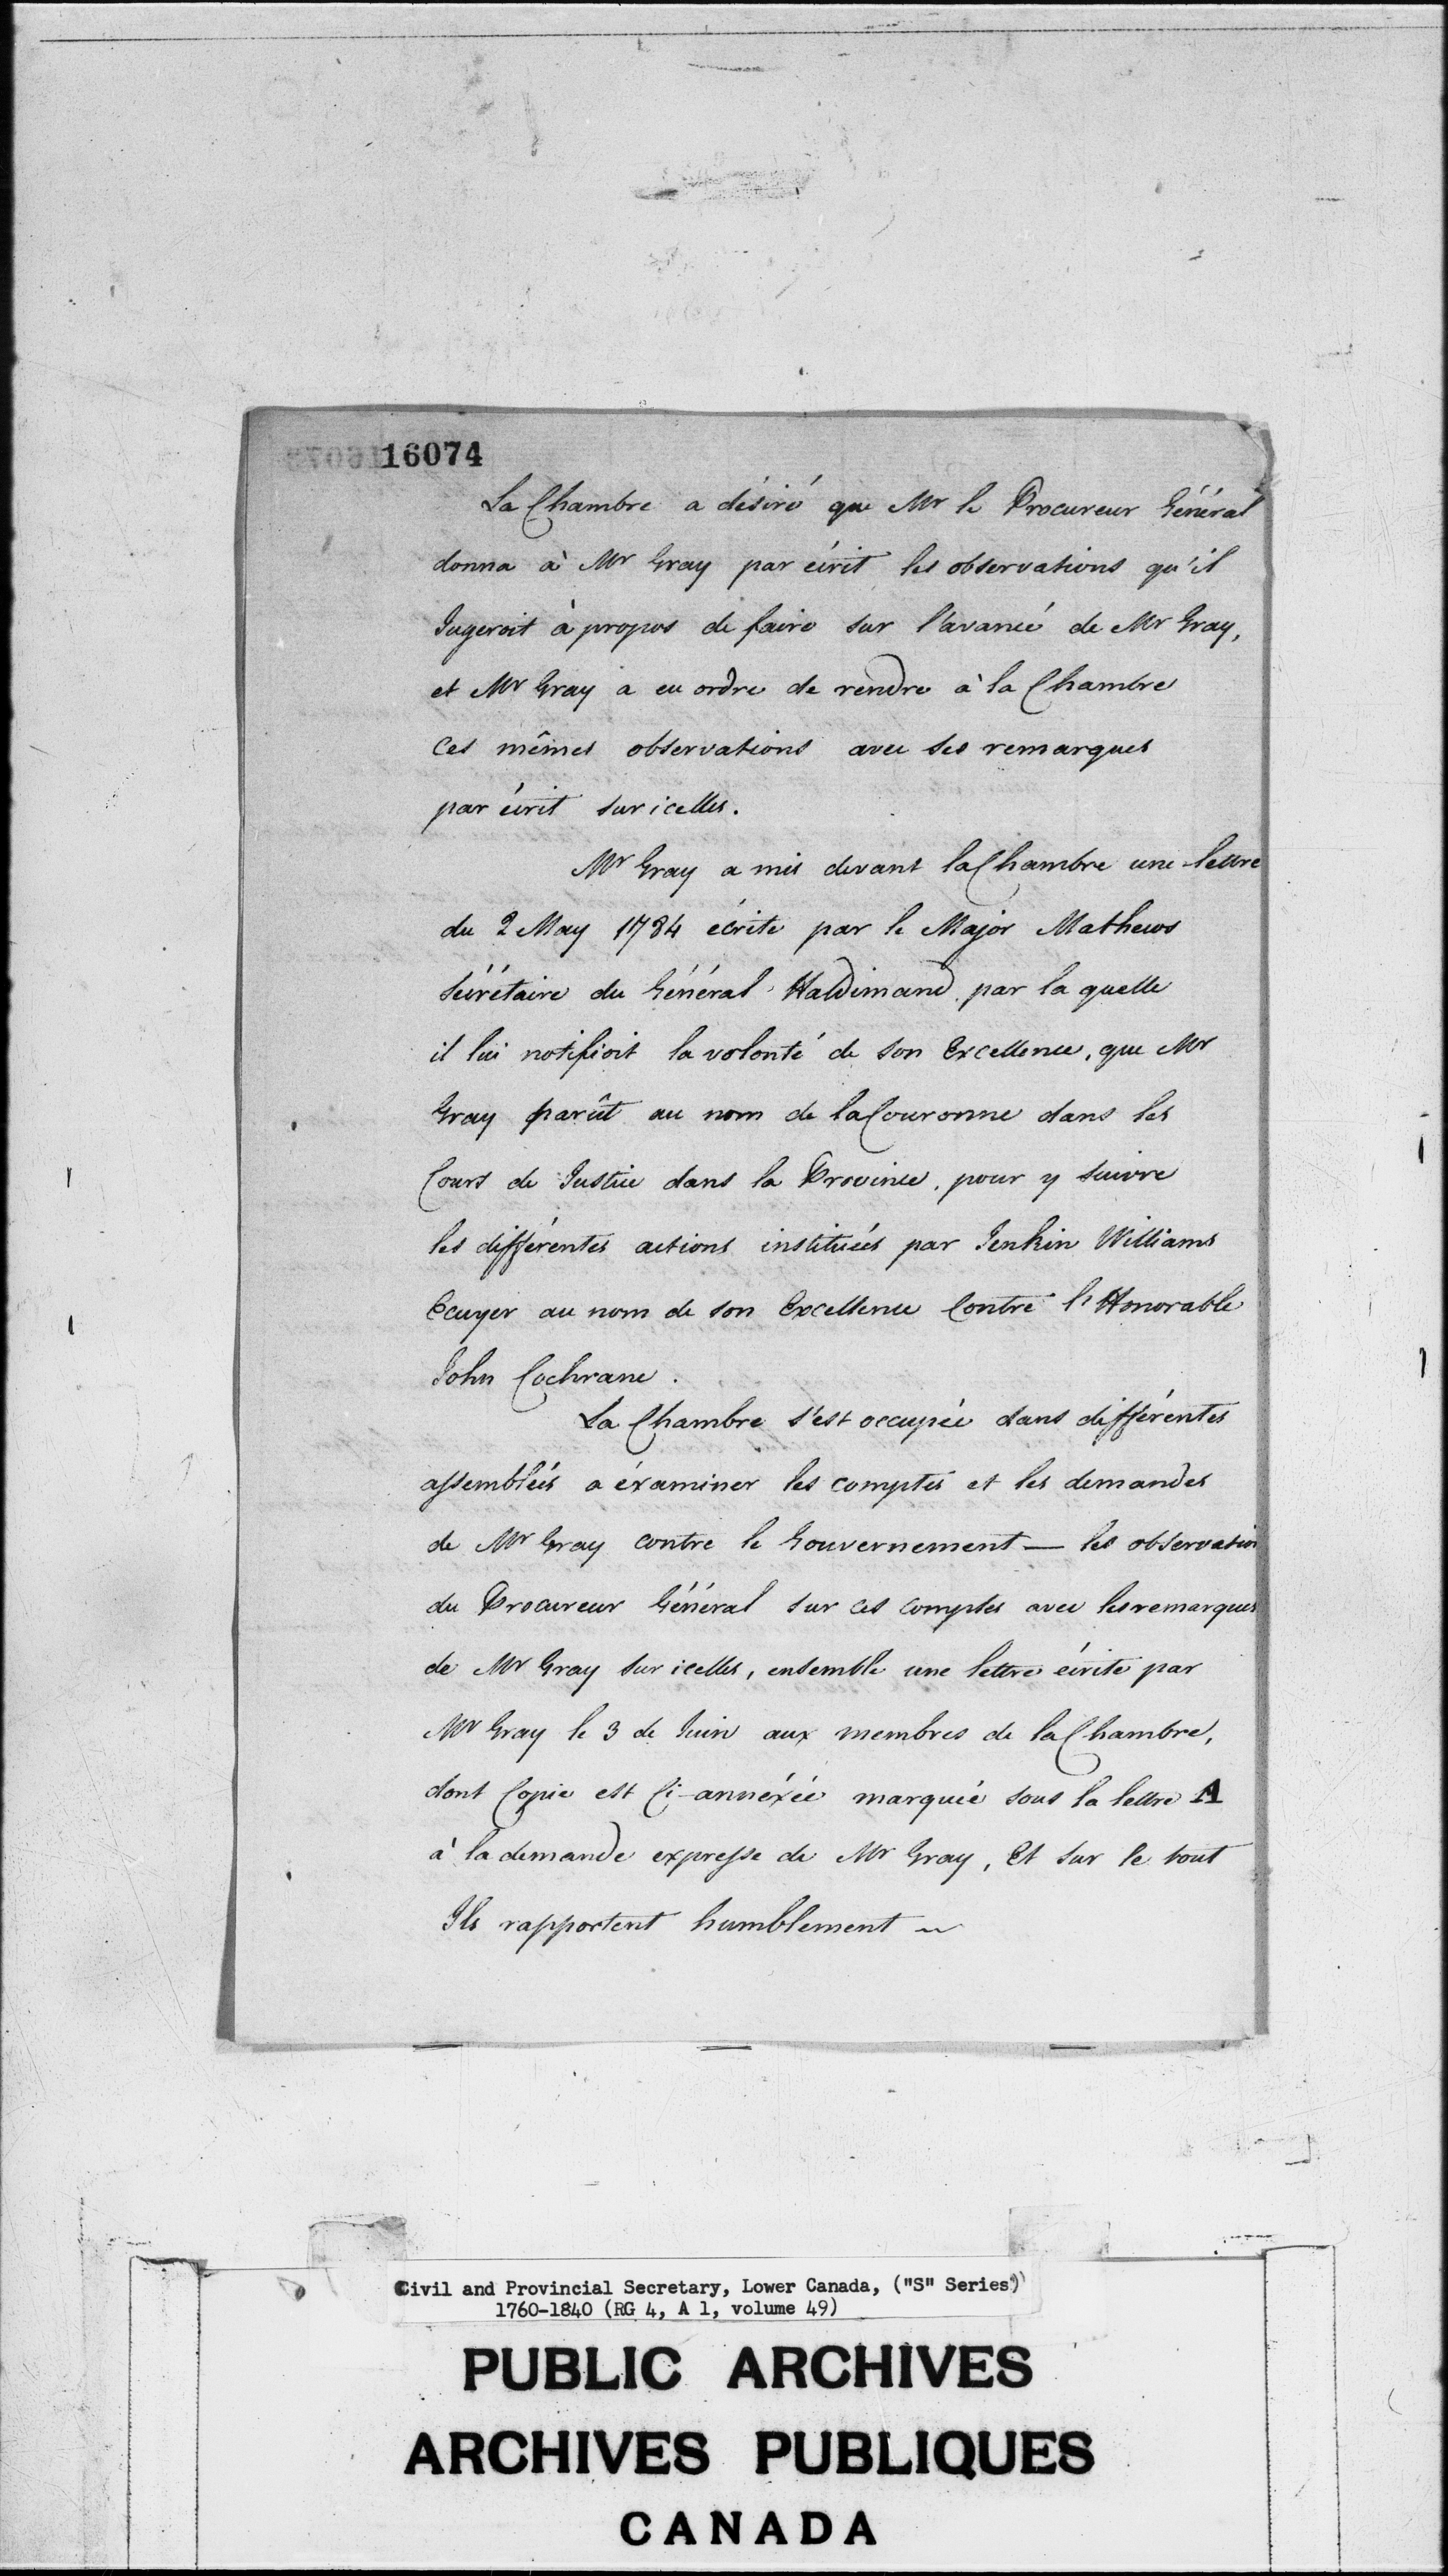 16074
La Chambre a désiré que Mr le Procureur Général
donna à Mr Gray par écrit les observations qu'il
Jugeroit à propos de faire sur l'avancé de Mr Gray,
et Mr Gray a eu ordre de rendre à la Chambre
Ces mêmes observations avec ses remarques
par écrit sur icelles.
Mr Gray a mis devant la Chambre une lettre
du 2 May 1784 écrite par le Major Mathews
Sécrétaire du Général Haldimand par la quelle
il lui notifioit la volonté de son Excellence, que Mr
Gray parût au nom de la Couronne dans les
Cours de Justice dans la Province, pour y suivre
les différentes actions instituées par Jenkin Williams
Ecuyer au nom de son Excellence Contre l'Honorable
John Cochrane.
La Chambre s'est occupée dans différentes
assemblées a éxaminer les comptes et les demandes
de Mr Gray contre le Gouvernement — les observation
du Procureur Général sur ces comptes avec les remarques
de Mr Gray sur icelles, ensemble une lettre écrite par
Mr Gray le 3 de Juin aux membres de la Chambre,
dont Copie est Ci-annéxée marquée sous la lettre A
à la demande expresse de Mr Gray, Et sur le tout
Ils rapportent humblement ~
Civil and Provincial Secretary, Lower Canada, ("S" Series)
1760-1840 (RG 4, A 1, volume 49)
PUBLIC ARCHIVES
ARCHIVES PUBLIQUES
CANADA